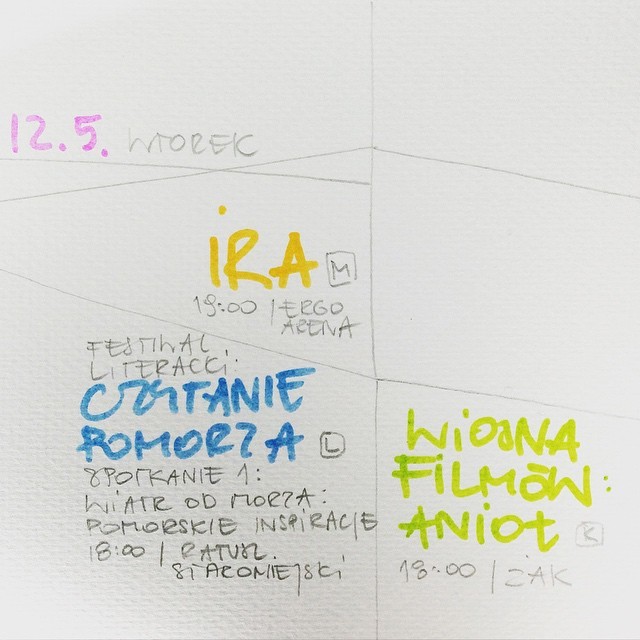 12.5. WTOREK
IRA M
19:00 / ERGO
ARENA
FESTIWAL
LITERACKI:
CZYTANIE
POMORZA L
SPOTKANIE 1:
WIATR OD MORZA:
POMORSKIE INSPIRACJE
18:00 / RATUSZ
STAROMIEJSKI
WIOSNA
FILMÓW:
ANIOŁ K
18:00 / ŻAK